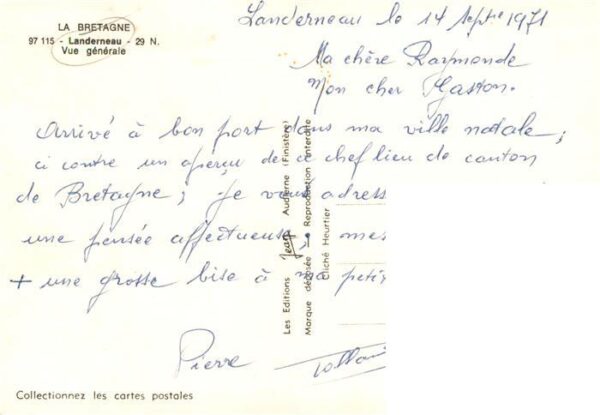 LA BRETAGNE
97 115 - Landerneau - 29 N.
Vue générale
Landerneau le 14 Septre 1971
Ma chère Raymonde
Mon cher Gaston.
Arrivé à bon port dans ma ville natale,
ci contre un aperçu de ce chef lieu de canton
de Bretagne; Je vous adress
une pensée affectueuse, mes
+ une grosse bise à ma petit
Pierre
Les Editions Jean Audierne (Finistère)
Marque déposée — Reproduction interdite
Cliché Heurtier
Collectionnez les cartes postales